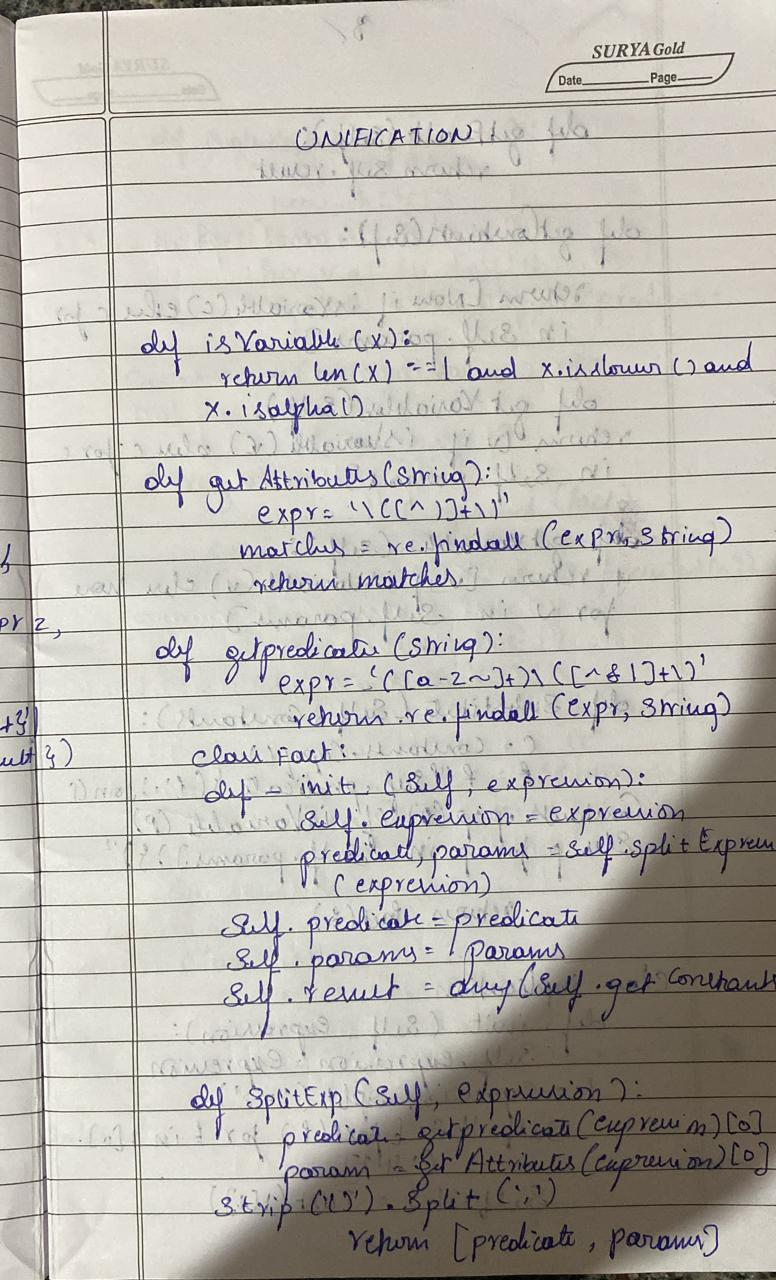 SURYA Gold
Date Page
UNIFICATION
def isVariable (x):
return len(x) ==1 and x.islower () and
x.isalpha().
def get Attributes (string):
expr= '\([^)]+\)'
matches = re.findall (expr, string)
return matches.
pr 2,
def getpredicate (string):
expr= '([a-z~]+)\([^&|]+\)'
+})
return re.findall (expr, string)
ult })
class Fact:
def - init (self, expression):
self. expression = expression
predicate, params = self.split Express
(expression)
self. predicate = predicate
self. params = params
self. result = any (self.get Constants
def SplitExp (self, expression):
predicate = getpredicate (expression) [0]
param = get Attributes (expression) [0]
strip ('()'). split (',')
return [predicate, params]